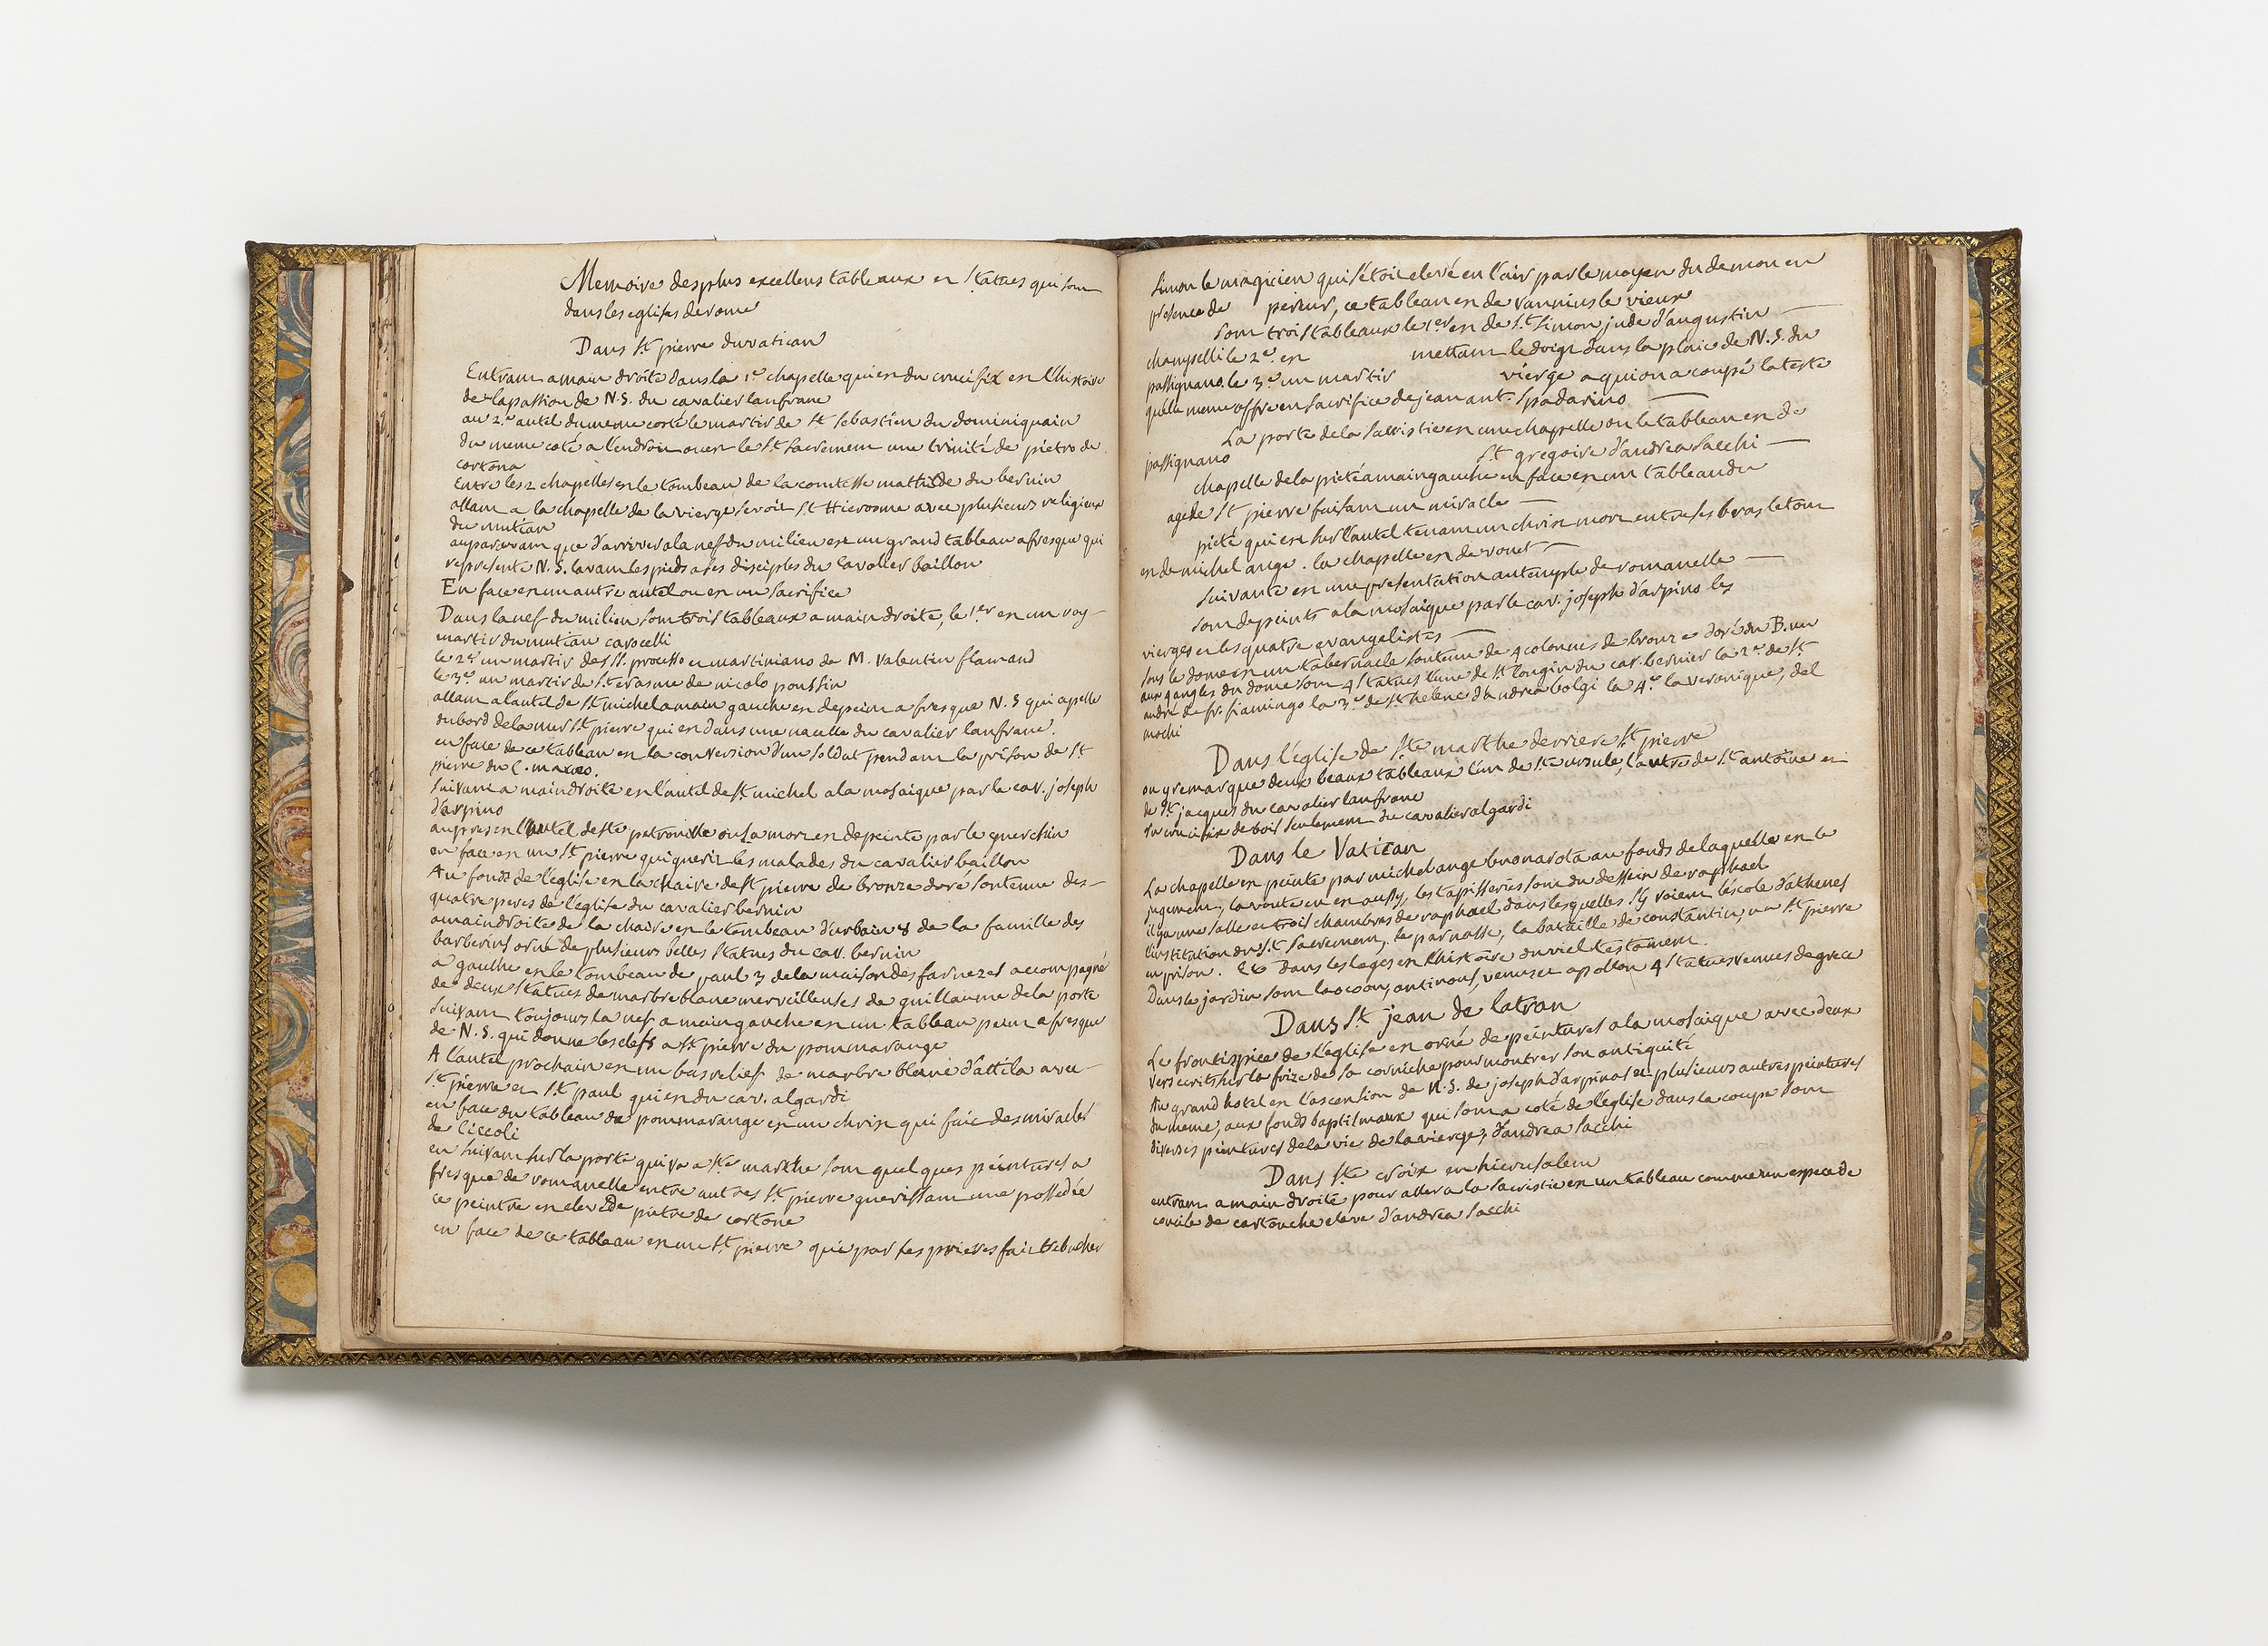 Memoire des plus excellens tableaux et statues qui sont
dans les eglises de rome
Dans St. pierre du vatican
Entrant a main droite dans la 1re chapelle qui est du crucifix est l'histoire
de la passion de N.S. du cavalier lanfranc
au 2e autel du meme costé le martir de St sebastien du dominiquain
du meme coté a l'endroit ou est le St. sacrement une trinité de pietro de
cortona
Entre les 2 chapelles est le tombeau de la comtesse mathilde du bernin
allant a la chapelle de la vierge se voit St Hierosme avec plusieurs religieux
du mutian
auparavant que d'arriver a la nef du milieu est un grand tableau a fresque qui
represente N.S. lavant les pieds a ses disciples du cavalier baillon
En face est un autre autel ou est un sacrifice
Dans la nef du milieu sont trois tableaux a main droite, le 1er est un roy
martir du mutian carocelli
le 2e un martir des SS. processo et martiniano de M. Valentin flamand
le 3e un martir de St. erasme de nicolo poussin
allant a l'autel de St michel a main gauche est depeint a fresque N.S qui apelle
du bord de la mer St. pierre qui est dans une nacelle du cavalier lanfranc.
en face de ce tableau est la conversion d'un soldat pendant la prison de St
pierre du C.
suivant a main droite est l'autel de St. michel a la mosaique par le cav. joseph
d'arpino
aupres est l'autel de Ste petronille ou sa mort est depeinte par le guerchin
en face est un St. pierre qui guerit les malades du cavalier baillon
Au fonds de l'eglise est la chaire de St pierre de bronze doré soutenue des
quatre peres de l'eglise du cavalier bernin
a main droite de la chaire est le tombeau d'urbain 8 de la famille des
barberins orné de plusieurs belles statues du cav. bernin
a gauche est le tombeau de paul 3 de la maison des farnezes accompagné
de deux statues de marbre blanc merveilleuses de guillaume de la porte
suivant toujours la nef a main gauche est un tableau peint a fresque
de N.S. qui donne les clefs a St. pierre du pommarange
A l'autel prochain est un bas relief de marbre blanc d'attila avec
St pierre et St. paul qui est du cav. algardi
en face du tableau de pommarange est un christ qui fait des miracles
de ciccoli
en suivant sur la porte qui va a Ste marthe sont quelques peintures a
fresque de romanelle entre autres St. pierre guerissant une possedée
ce peintre est eleve de pietre de cortone
en face de ce tableau est un St. pierre qui par ses prieres fait trebucher
simon le magicien qui s'étoit elevé en l'air par le moyen du demon en
presence de pereur, ce tableau est de vannius le vieux
sont trois tableaux le 1er est de St. simon jude d'augustin
champselli le 2e. est mettant le doigt dans la plaie de N.S. du
passignano. le 3e un martir vierge a qui on a coupé la teste
quelle meme offre en sacrifice de jean ant. spadarino
La porte de la sacristie est une chapelle ou le tableau est de
passignano St. gregoire d'andrea sacchi
chapelle de la pieté a main gauche en face est un tableau du
St pierre faisant un miracle
pieté qui est sur l'autel tenant un christ mort entre ses bras le tout
est de michel ange. la chapelle est de vouet
suivante est une presentation au temple de romanelle
sont depeints a la mosaique par le cav. joseph d'arpino les
vierges et les quatre evangelistes
sous le dome est un tabernacle soutenu de 4 colonnes de bronze doré du B.
aux 4 angles du dome sont 4 statues l'une de St. longin du cav. bernier la 2e de St
andré de fr. fiamingo la 3e de Ste helene d'andrea bolgi la 4e la veronique, del
mochi
Dans l'église de Ste marthe derriere St. pierre
on y remarque deux beaux tableaux l'un de Ste ursule, l'autre de St antoine et
de St. jacques du cavalier lanfranc
Un crucifix de bois seulement du cavalier algardi
Dans le Vatican
La chapelle est peinte par michel ange buonarota au fonds de laquelle est le
jugement, la voute en est aussy, les tapisseries sont du dessein de raphael
il y a une salle et trois chambres de raphael dans lesquelles s'y voient l'escole d'athenes
l'institution du St. sacrement, le parnasse, la bataille de constantin, un St. pierre
en prison. &c dans les loges est l'histoire du viel testament.
Dans le jardin sont laocoon, antinous, venus et apollon 4 statues venues de grece
Dans St. jean de latran
Le frontispice de l'eglise est orné de peintures a la mosaique avec deux
vers ecrits sur la frize de sa corniche pour montrer son antiquité
Au grand hotel est l'ascension de N.S. de joseph d'arpinas et plusieurs autres peintures
du meme, aux fonds baptismaux qui sont a coté de l'eglise dans la coupe sont
diverses peintures de la vie de la vierge, d'andrea sacchi
Dans Ste croix en hierusalem
entrant a main droite pour aller a la sacristie est un tableau comme un espece de
concile de cartouche eleve d'andrea sacchi